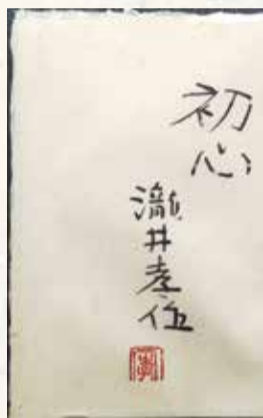 初心
瀧井孝作